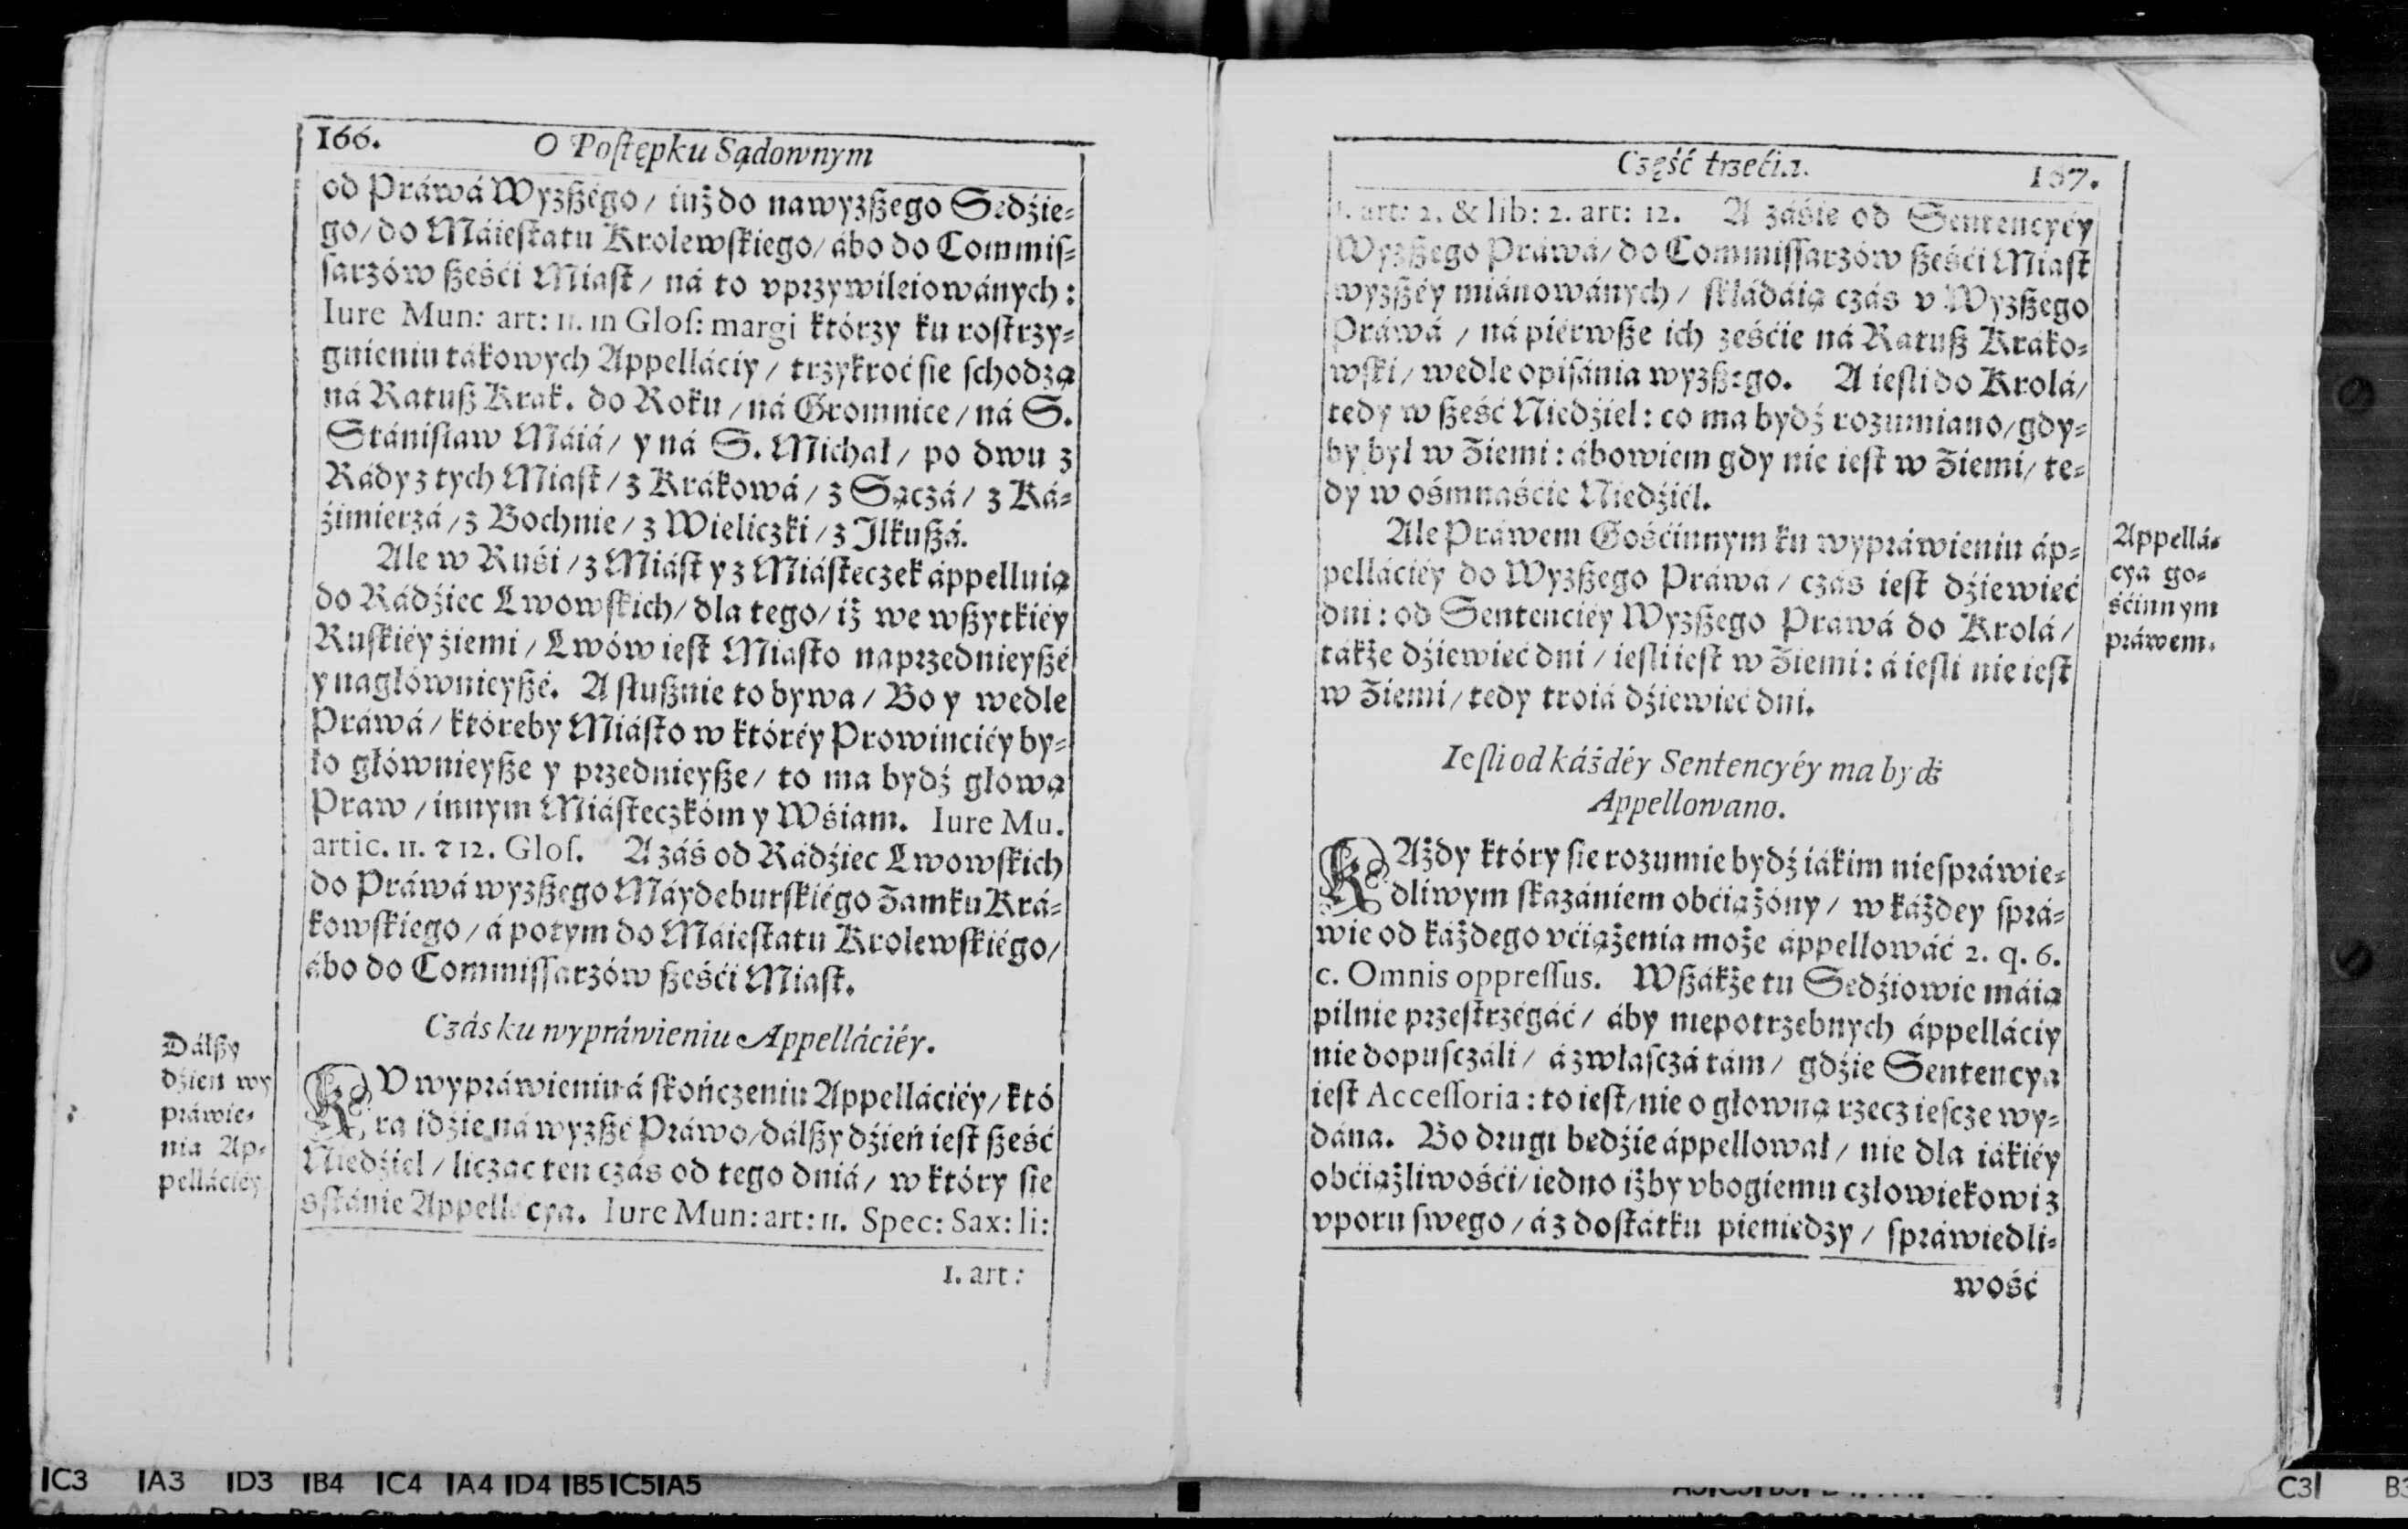 166. O Poſtępku Sądownym
od Práwá Wyzßégo / iuż do nawyzßego Sędźie⸗
go / do Máieſtatu Krolewſkiego / ábo do Commiſ⸗
ſarzów ßeśći Miaſt / ná to vprzywileiowánych :
Iure Mun: art: 11. in Gloſ: margi którzy ku roſtrzy⸗
gnieniu tákowych Appelláciy / trzykroć ſie ſchodzą
ná Ratuß Krak. do Roku / ná Gromnice / ná S.
Stániſław Máiá / y ná S. Michał / po dwu z
Rády z tych Miaſt / z Krákowá / z Sączá / z Ká⸗
źimierzá / z Bochnie / z Wieliczki / z Ilkußá.
Ale w Ruśi / z Miáſt y z Miáſteczek áppelluią
do Rádźiec Lwowſkich / dla tego / iż we wßytkiéy
Ruſkiéy źiemi / Lwów ieſt Miaſto naprzednieyßé
y nagłównieyßé. A ſłußnie to bywa / Bo y wedle
Práwá / któreby Miáſto w któréy Prowinciéy by⸗
ło głównieyße y przednieyße / to ma bydź głową
Praw / innym Miáſteczkóm y Wśiam. Iure Mu.
artic. 11. & 12. Gloſ. A záś od Rádźiec Lwowſkich
do Práwá wyzßego Máydeburſkiégo Zamku Krá⸗
kowſkiego / á potym do Máieſtatu Krolewſkiégo /
ábo do Commiſſarzów ßeśći Miaſt.
Czás ku wypráwieniu Appelláciéy.
Dálßy
dźień wy
práwie⸗
nia Ap⸗
pelláciéy
KV wypráwieniu á ſkończeniu Appelláciéy / któ
ra idźie ná wyzßé Práwo / dálßy dźień ieſt ßeść
Niedźiel / licząc ten czás od tego dniá / w który ſie
sſtánie Appellácya. Iure Mun: art: 11. Spec: Sax: li:
1. art :
Część trzećia. 167.
1. art: 2. & lib: 2. art: 12. A záśie od Sentencyéy
Wyzßego Práwá / do Commiſſarzów ßeśći Miaſt
wyzßéy miánowánych / ſkłádáią czás v Wyzßego
Práwá / ná piérwße ich ześćie ná Ratuß Kráko⸗
wſki / wedle opiſánia wyzßego. A ieſli do Krolá /
tedy w ßeść Niedźiel : co ma bydź rozumiano / gdy⸗
by był w Ziemi : ábowiem gdy nie ieſt w Ziemi / te⸗
dy w ośmnaśćie Niedźiél.
Ale Práwem Gośćinnym ku wypráwieniu áp⸗
pelláciéy do Wyzßego Práwá / czás ieſt dźiewieć
dni : od Sentenciéy Wyzßego Prawá do Krolá /
tákże dźiewieć dni / ieſli ieſt w Ziemi : á ieſli nie ieſt
w Ziemi / tedy troiá dźiewieć dni.
Appellá⸗
cya go⸗
śćinnym
práwem.
Ieſli od káżdéy Sentencyéy ma bydź
Appellowano.
KAżdy który ſie rozumie bydź iákim nieſpráwie⸗
dliwym ſkazániem obćiążóny / w káżdey ſprá⸗
wie od káżdego vćiążenia może áppellowáć 2. q. 6.
c. Omnis oppreſſus. Wßákże tu Sedźiowie máią
pilnie przeſtrzégáć / áby niepotrzebnych áppelláciy
nie dopuſczáli / á zwłaſczá tám / gdźie Sentencya
ieſt Acceſſoria : to ieſt / nie o głowną rzecz ieſcze wy⸗
dána. Bo drugi bedźie áppellował / nie dla iákiéy
obćiążliwośći / iedno iżby vbogiemu człowiekowi z
vporu ſwego / á z doſtátku pieniedzy / ſpráwiedli⸗
wość